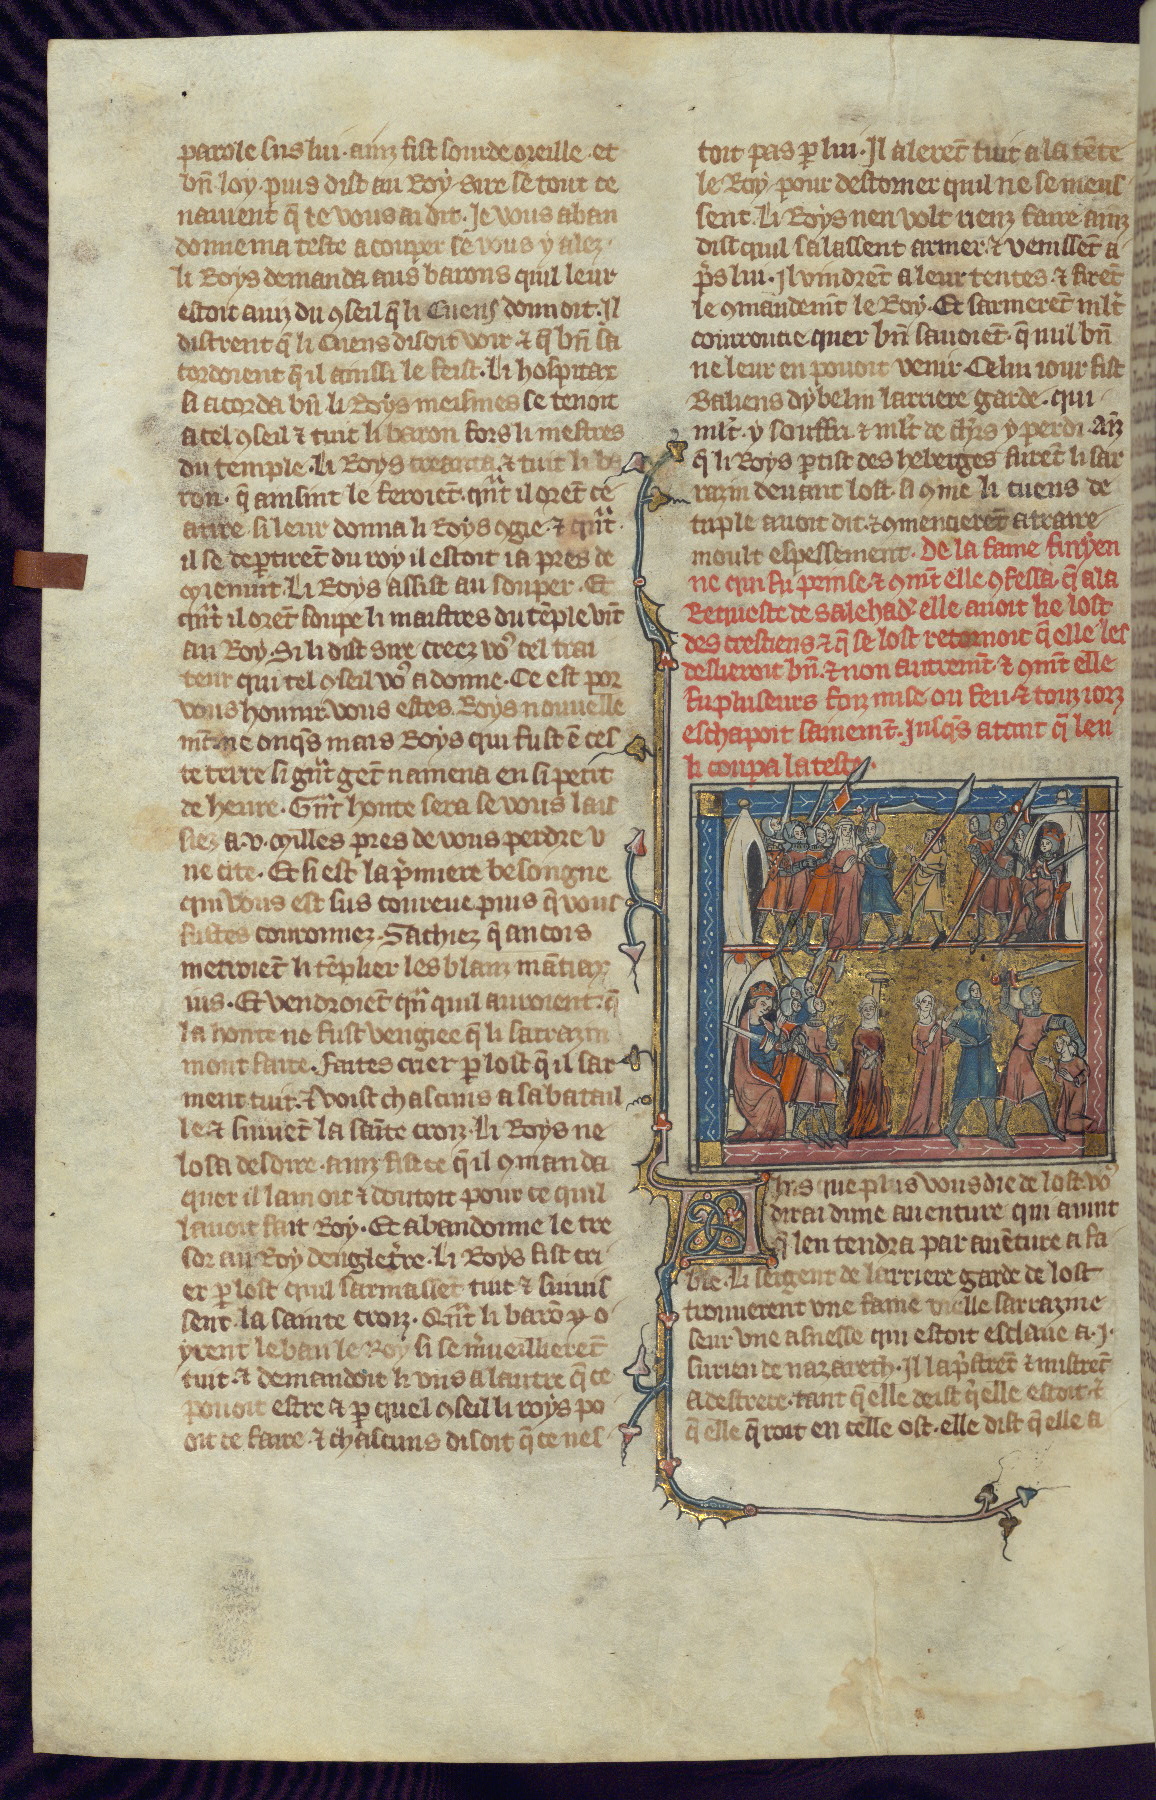 parole sus lui. ainz fist sourde oreille. et
bñ loy. puis dist au Roy. sire se tout ce
nauient q̃ ie vous ai dit. Je vous aban
donne ma teste a couper se vous y alez.
li Roys demanda aus barons quil leur
estoit auiz du ꝯseil q̃ li Cuens donnoit. Il
distrent q̃ li Cuens disoit voir ⁊ q̃ bñ sa
cordoient q̃ il ainssi le feist. Li hospitax
si acorda bñ li Roys meismes se tenoit
a cel ꝯseil ⁊ tuit li baron fors li mestres
du temple. Li Roys creanta ⁊ tuit li ba
ron. q̃ ainsint le feroiẽt. qñt il orẽt ce
 si leur donna li Roys ꝯgie. ⁊ qñt
il se deꝑtirẽt du roy il estoit ia pres de
mienuit. Li Roys assist au souper. Et
qñt il orẽt soupe li maistres du tẽple vĩt
au Roy. Si li dist sire creez voꝰ cel trai
teur qui tel ꝯseil voꝰ a donne. Ce est por
vous honnir. vous estes Roys nouuelle
mẽt. ne onq̃s mais Roys qui fust ẽ ces
te terre si gñt gẽt namena en si petit
de heure. Gñt honte sera se vous lais
siez a .v. milles pres de vous perdre v
ne cite. Et si est la p̃miere besoingne
qui vous est sus coureue puis q̃ vous
fustes couronnez. Sachiez q̃ ancois
metroiẽt li tẽplier les blanz mãtiax
ius. Et vendroiẽt qñ quil auroient. q̃
la honte ne fust vengiee q̃ li sarrazin
mont faite. Faites crier ꝑ lost q̃ il sar
ment tuit. ⁊ voist chascuns a sa batail
le ⁊ siuuẽt la saĩte croiz. Li Roys ne
losa desdire. ainz fist ce q̃ il ꝯmanda
quer il lamoit ⁊ doutoit pour ce quil
lauoit fait Roy. Et abandonne le tre
sor au Roy dengleterre. Li Roys fist cri
er ꝑ lost quil sarmassẽt tuit ⁊ siuuis
sent la sainte croiz. Qñt li barõ y o
yrent le ban le Roy si se m̃ueillierẽt
tuit. ⁊ demandoit li vns a lautre q̃ ce
pouoit estre ⁊ ꝑ quel ꝯseil li roys po
oit ce faire. ⁊ chascuns disoit q̃ ce nes
toit pas ꝑ lui. Il alerẽt tuit a la tẽte
le Roy. pour destorner quil ne se meus
sent. Li Roys nen volt rienz faire ainz
dist quil salassent armer ⁊ venissẽt a
p̃s lui. Il vindrẽt a leur tentes ⁊ firẽt
le ꝯmandemẽt le Roy. Et sarmerẽt ml̃t
courroucie quer bñ sauoiẽt. q̃ nul bñ
ne leur en pouoit venir. Celui iour fist
Baliens dybelin larriere garde. qui
ml̃t. y souffri ⁊ ml̃t de ch̃rs y perdi. Ainz
q̃ li Roys ꝑtist des heberges furẽt li sar
razin deuant lost. si ꝯme li cuens de
triple auoit dit. ⁊ ꝯmencierẽt a traire
moult espessement. De la fame suryen
ne qui fu prinse. ⁊ ꝯmẽt elle ꝯfessa. q̃ a la
Requeste de salehad. elle auoit lie lost
des crestiens ⁊ q̃ se lost retornoit q̃ elle les
deslieroit bñ. ⁊ non autremẽt. ⁊ ꝯmẽt elle
fu pluseurs foiz mise ou feu. ⁊ touz iorz
eschapoit sainemẽt. Jusq̃s atant q̃ len
li coupa la teste.
Ains que plus vous die de lost. voꝰ
dirai dune auenture qui auint
q̃ len tendra par auẽture a fa
ble. Li sergent de larriere garde de lost
trouuerent vne fame vielle sarrazine
seur vne asnesse qui estoit esclaue a .j.
surien de nazareth. Il la p̃strẽt ⁊ mistrẽt
a destrece. tant q̃ elle deist q̃ elle estoit. ⁊
q̃ elle q̃roit en celle ost. elle dist q̃ elle a